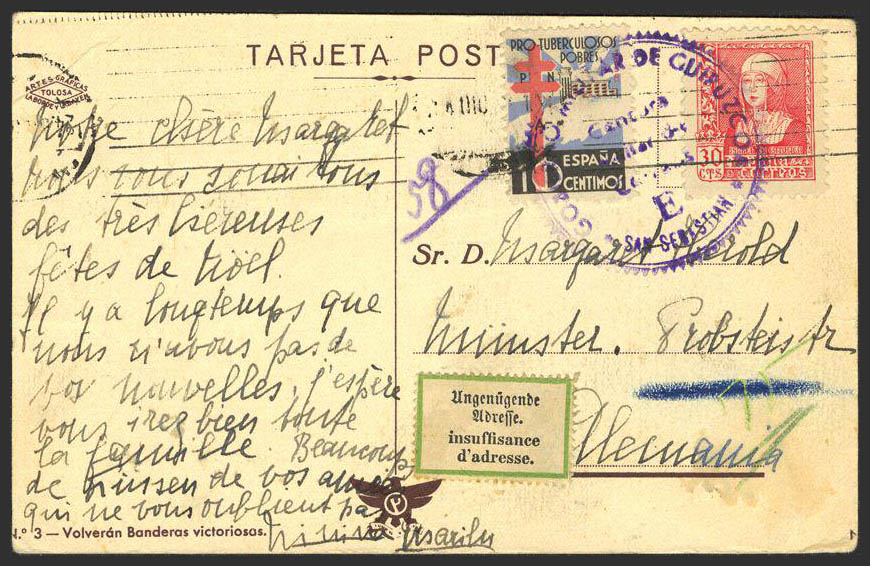 TARJETA POST
ARTES GRÁFICAS
TOLOSA
LABORDE Y LABAYEN
Notre chère Margaret
nous vous souhaitons
des très héreuses
fêtes de Noel.
Il y a longtemps que
nous n'avons pas de
vos nouvelles. J'espère
vous irez bien toute
la famille. Beaucoup
de de vos amies
qui ne vous oublient pas
Marilu
N.º 3 — Volverán Banderas victoriosas.
PRO TUBERCULOSOS
POBRES
P N
ESPAÑA
10 CENTIMOS
30
CTS
CORREOS
MILITAR DE GUIPUZCOA
Censura
E
SAN SEBASTIAN
38
Sr. D. Margaret Herold
Münster. Probsteistr
Alemania
Ungenügende
Adresse.
insuffisance
d'adresse.